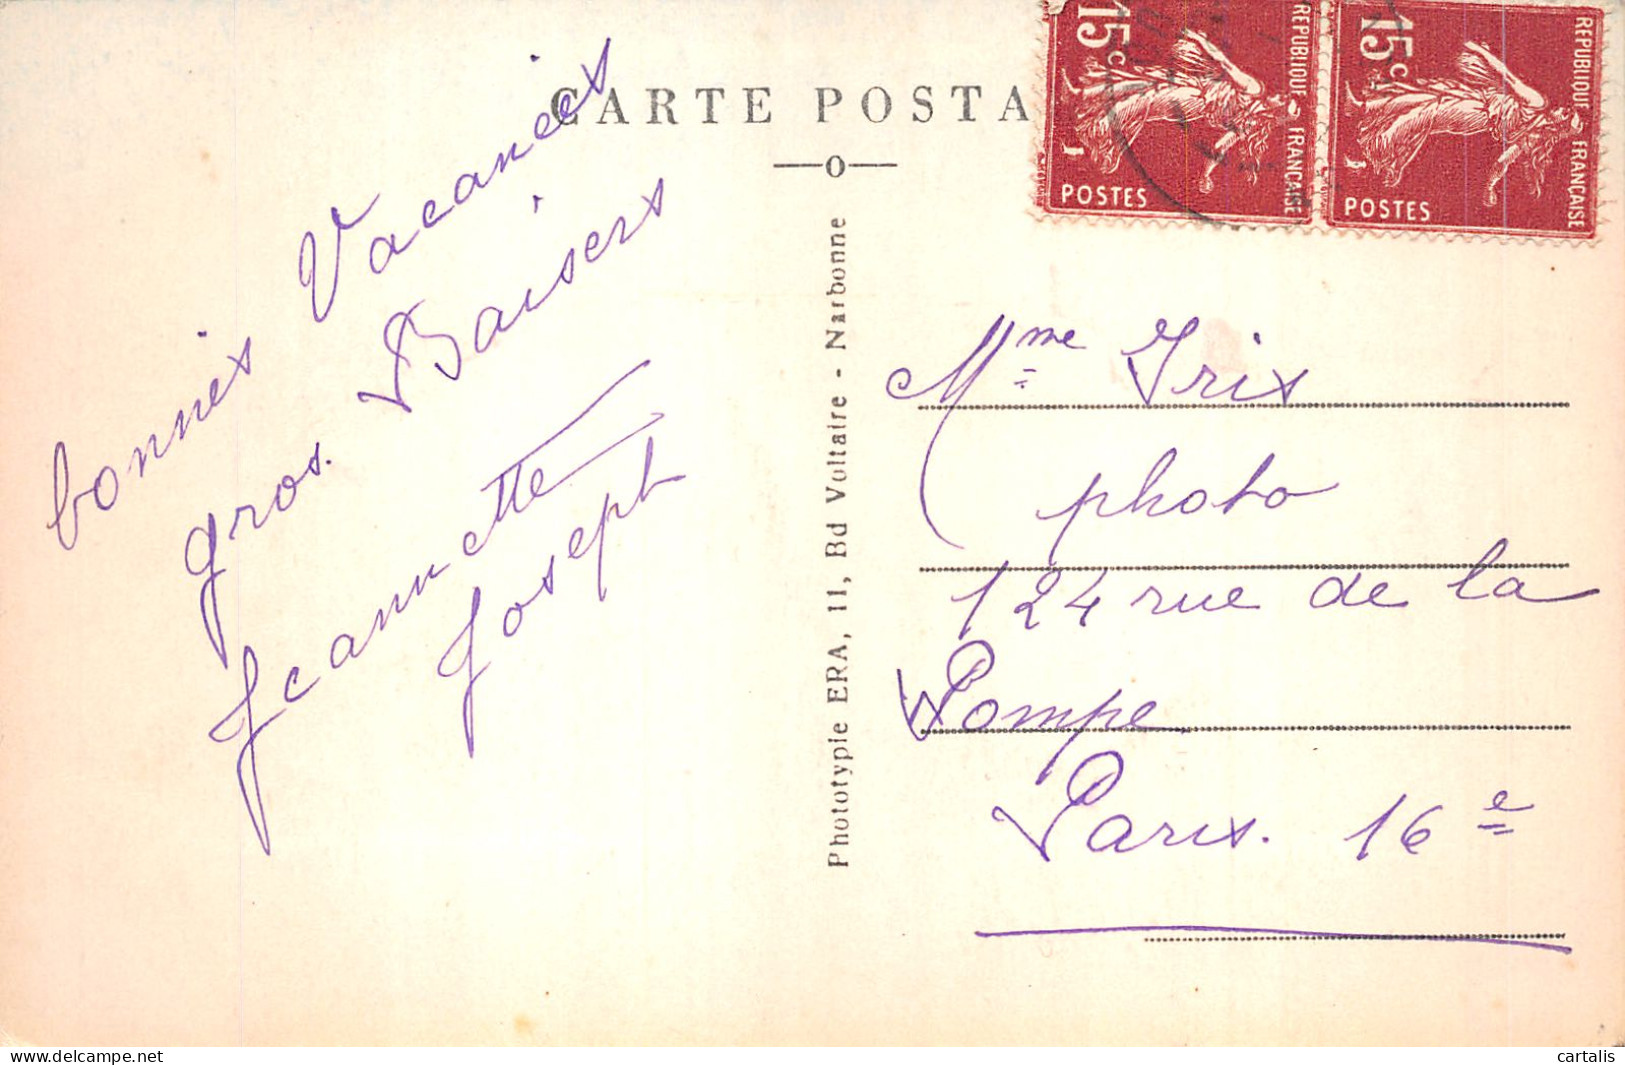 CARTE POSTA
—o—
15c
REPUBLIQUE FRANÇAISE
POSTES
15c
REPUBLIQUE FRANÇAISE
POSTES
bonnes Vacances
gros. Baisers
Jeannette
Joseph
Phototypie ERA, 11, Bd Voltaire - Narbonne
Mme Iris
photo
124 rue de la
Pompe
Paris. 16e
www.delcampe.net
cartalis